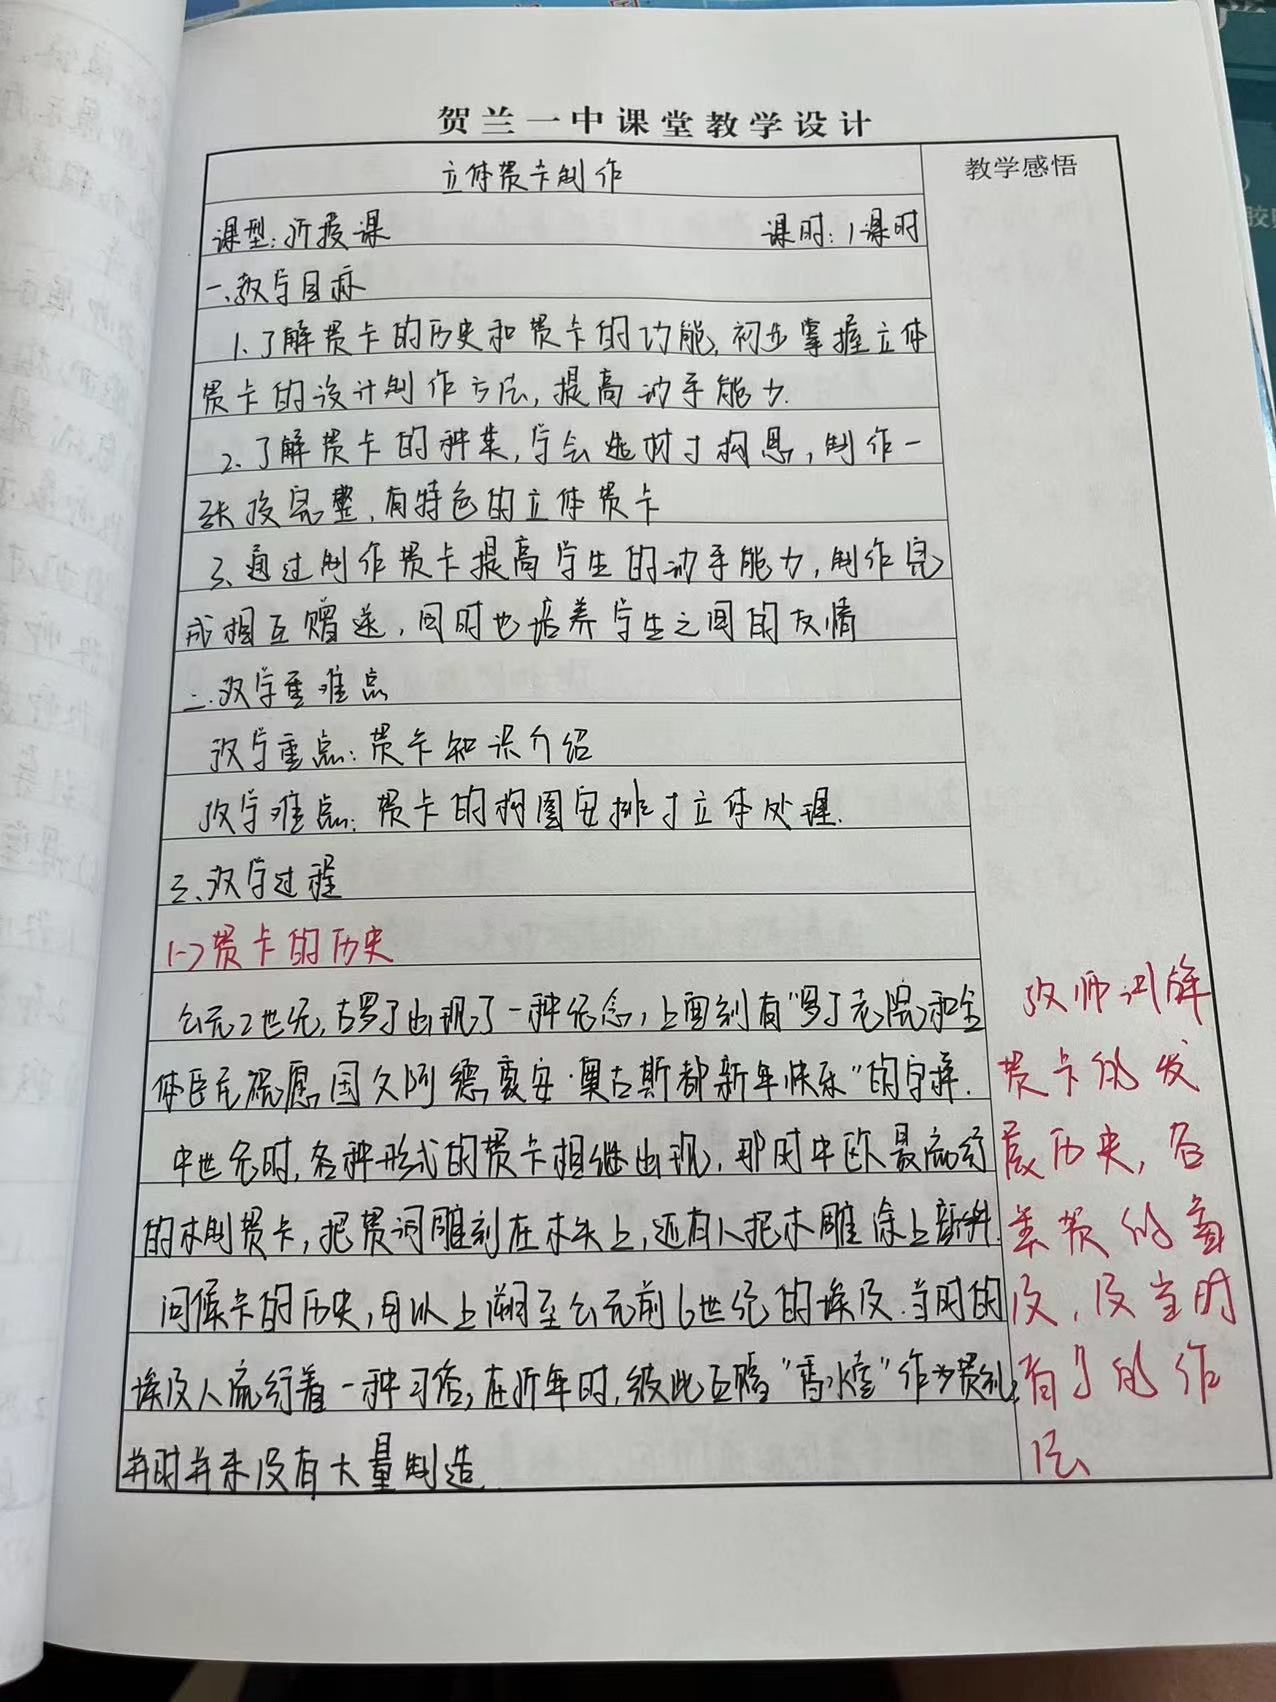 贺兰一中课堂教学设计
立体贺卡制作
教学感悟
课型：新授课 课时：1课时
一、教学目标
1.了解贺卡的历史和贺卡的功能，初步掌握立体
贺卡的设计制作方法，提高动手能力.
2.了解贺卡的种类，学会选材与构思，制作一
张较完整、有特色的立体贺卡
3、通过制作贺卡提高学生的动手能力，制作完
成相互赠送，同时也培养学生之间的友情
二.教学重难点
教学重点：贺卡知识介绍
教学难点：贺卡的构图安排与立体处理.
三、教学过程
(一)贺卡的历史
公元2世纪，古罗马出现了一种纪念，上面刻有“罗马元老院和全
体臣民祝愿国父阿德裹安·奥古斯都新年快乐”的字样.
中世纪时，各种形式的贺卡相继出现，那时中欧最流行
的木制贺卡，把贺词雕刻在木头上，还有人把木雕涂上颜料.
问候卡的历史，可以上溯至公元前6世纪的埃及.当时的
埃及人流行着一种习俗，在新年时，彼此互赠“香水壶”作为贺礼，
并未没有大量制造.
教师讲解
贺卡的发
展历史，各
类贺的
及，及当时
有了的作
法